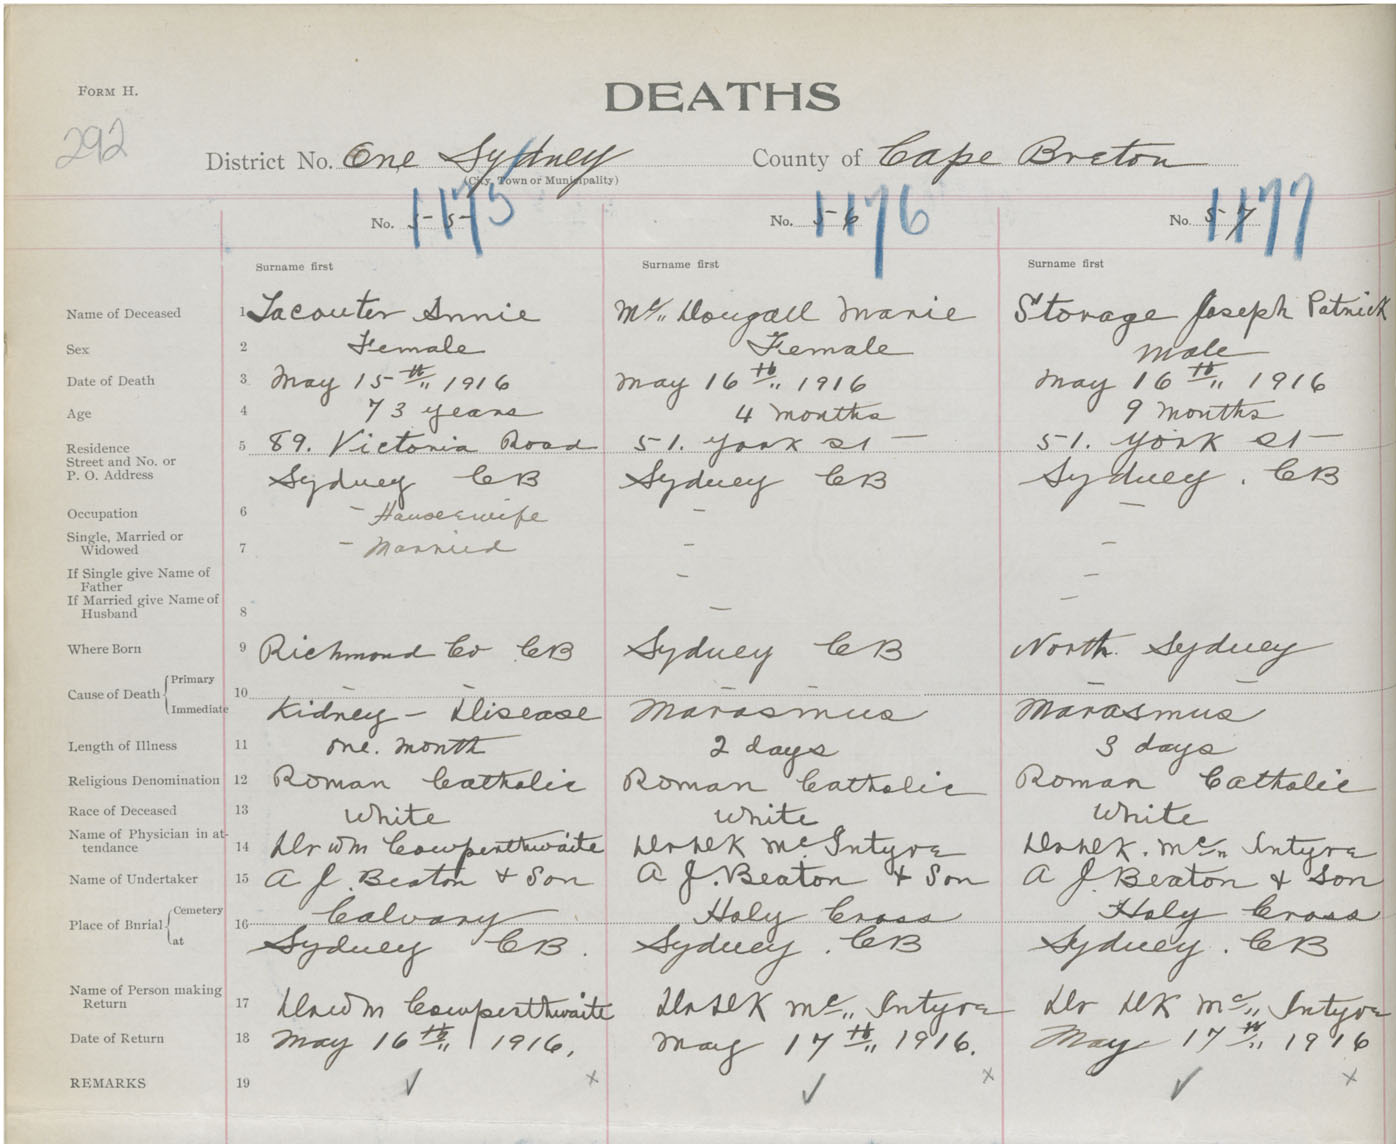 FORM H.
DEATHS
292
District No. One Sydney County of Cape Breton
(City, Town or Municipality)
1175 1176 1177
No. 55 No. 56 No. 57
Surname first Surname first Surname first
Name of Deceased 1 Lacouter Annie Mc,, Dougall Marie Storage Joseph Patrick
Sex 2 Female Female Male
Date of Death 3 May 15th,, 1916 May 16th,, 1916 May 16th,, 1916
Age 4 73 years 4 months 9 months
Residence 5 89. Victoria Road 51. York St 51. York St
Street and No. or
P. O. Address Sydney CB Sydney CB Sydney. CB
Occupation 6 - Housewife - -
Single, Married or
Widowed 7 - Married - -
If Single give Name of
Father - -
If Married give Name of
Husband 8 - -
Where Born 9 Richmond Co CB Sydney CB North Sydney
Cause of Death { Primary 10 - - - - - -
Immediate Kidney - Disease Marasmus Marasmus
Length of Illness 11 one. month 2 days 3 days
Religious Denomination 12 Roman Catholic Roman Catholic Roman Catholic
Race of Deceased 13 White White White
Name of Physician in at-
tendance 14 Dr Wm Cowperthwaite Dr DK Mc Intyre Dr DK. Mc,, Intyre
Name of Undertaker 15 A J. Beaton & Son A J. Beaton & Son A J. Beaton & Son
Place of Burial { Cemetery 16 Calvary Holy Cross Holy Cross
at Sydney CB. Sydney. CB Sydney. CB
Name of Person making
Return 17 Dr Wm Cowperthwaite Dr DK Mc,, Intyre Dr DK Mc,, Intyre
Date of Return 18 May 16th,, 1916. May 17th,, 1916. May 17th,, 1916
REMARKS 19 ✓ x ✓ x ✓ x